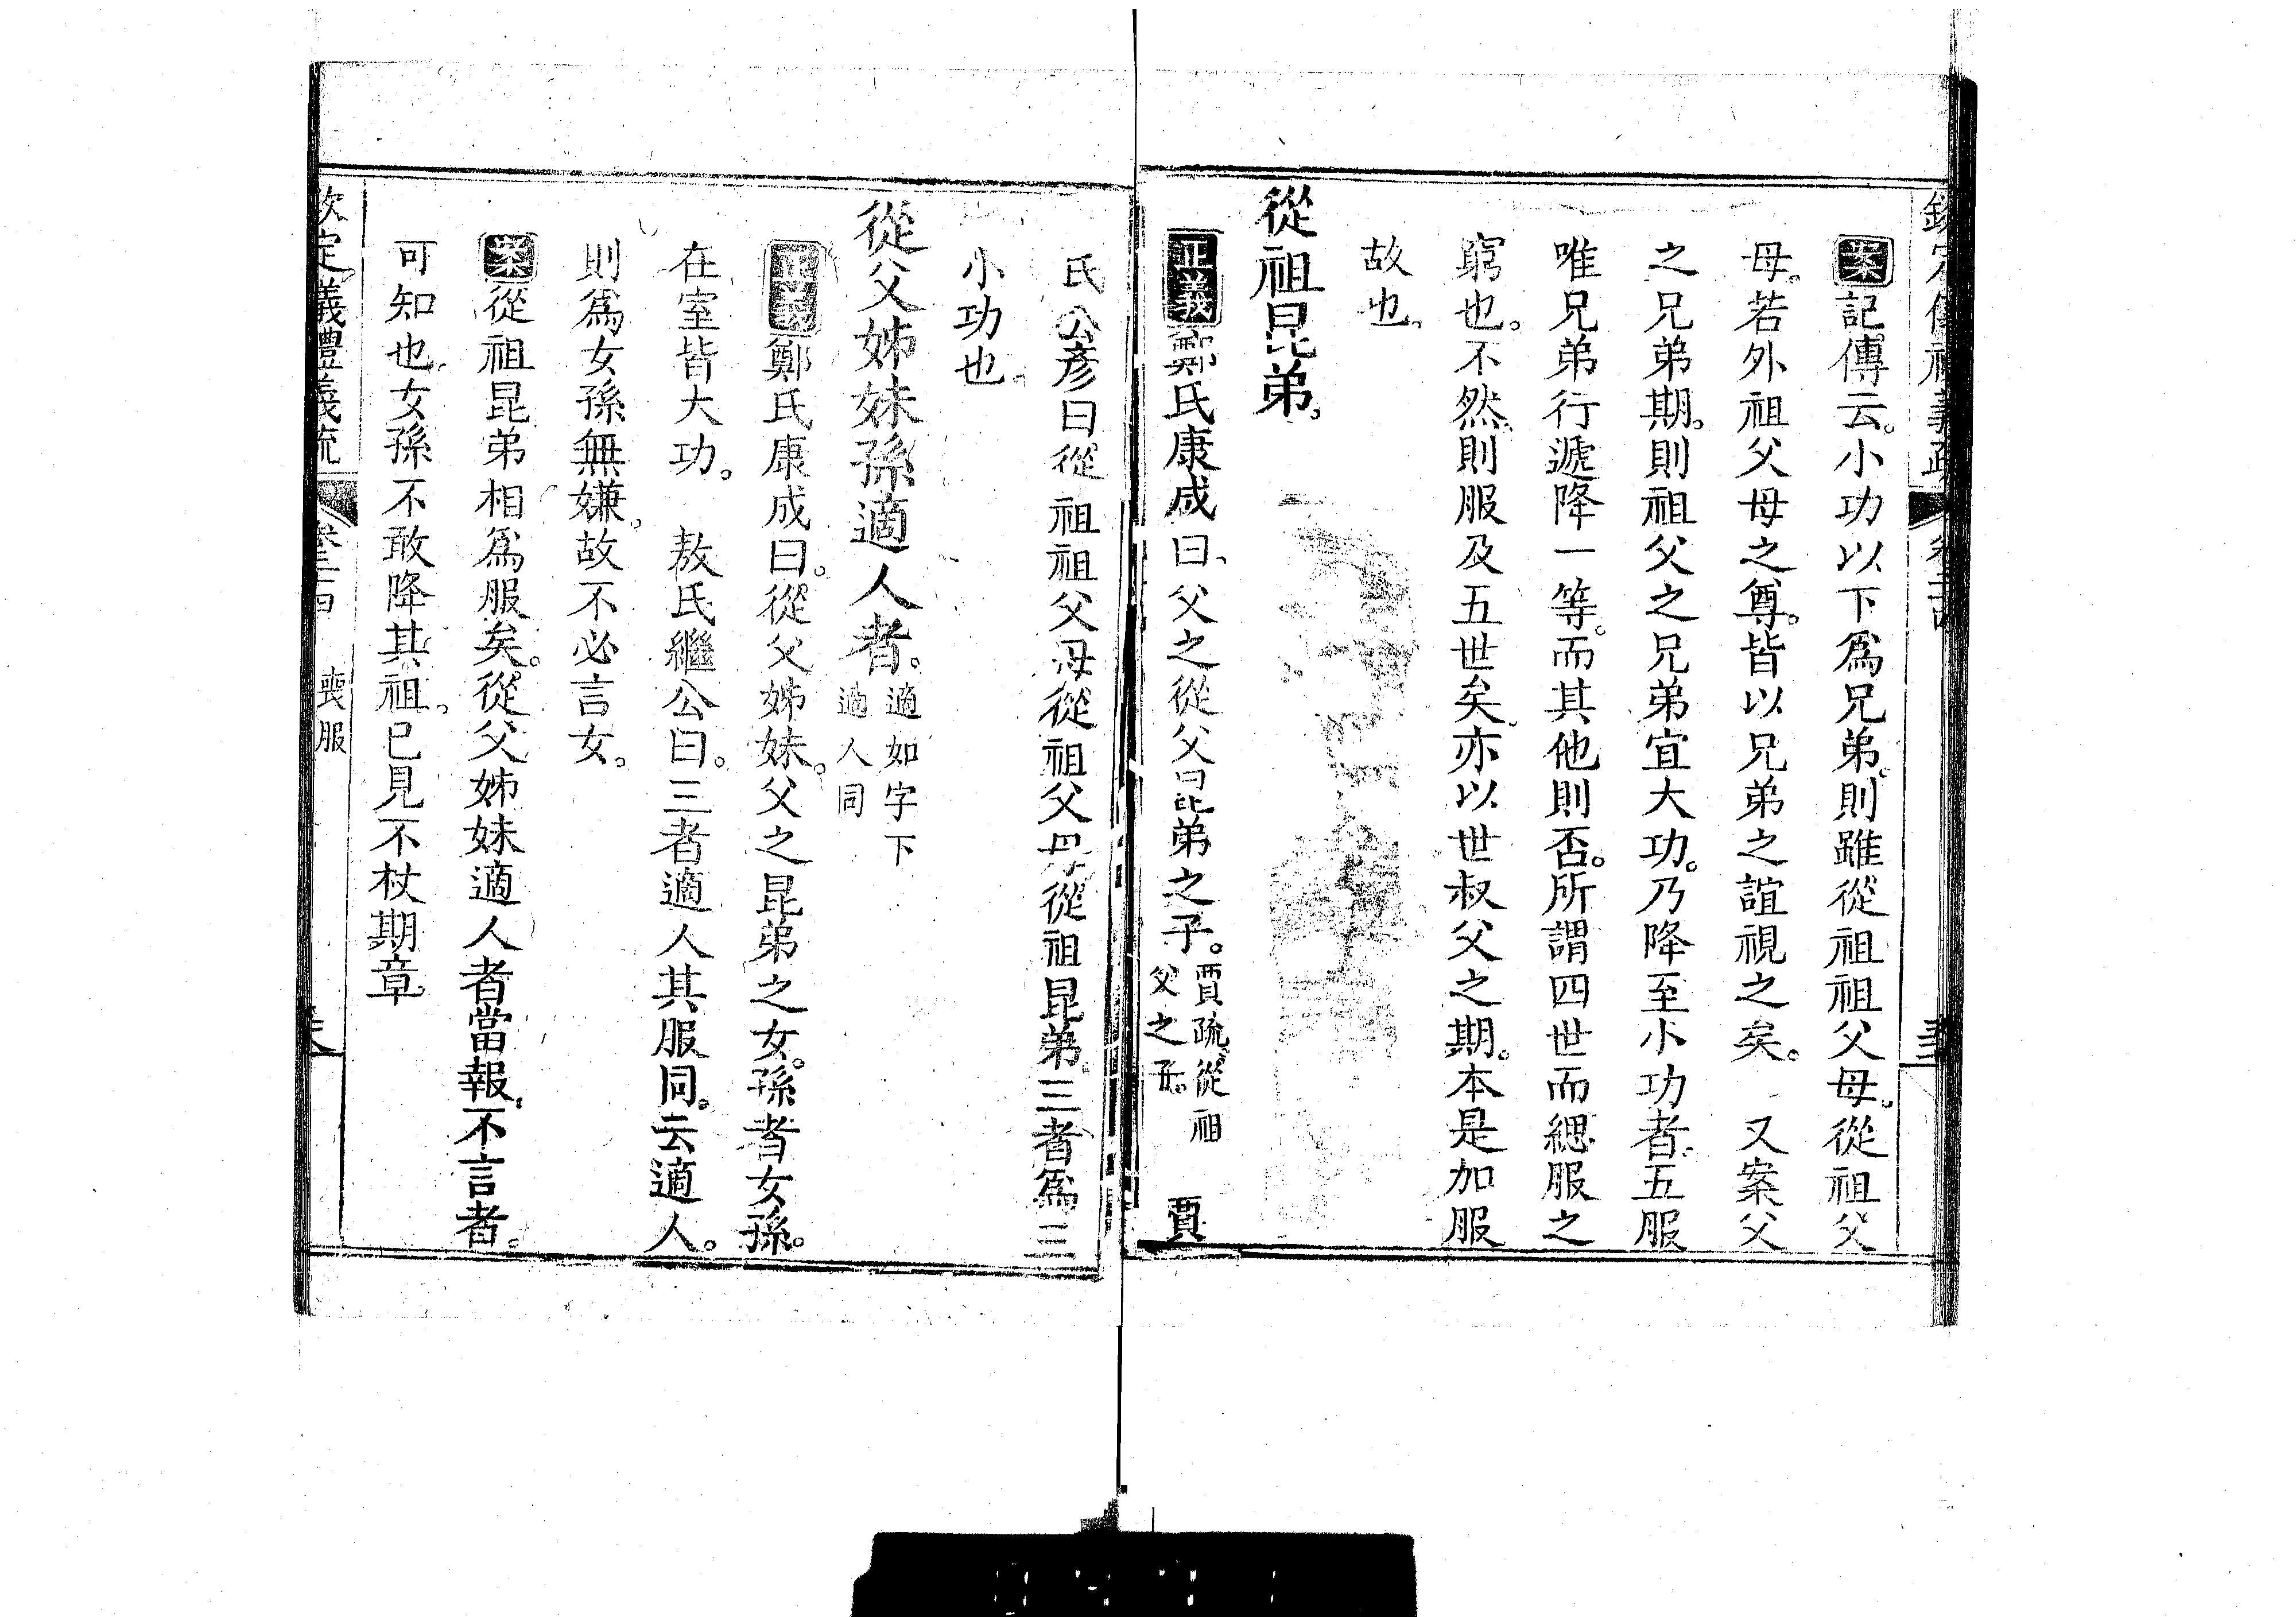 案記傳云。小功以下爲兄弟。則雖從祖祖父母。從祖父
母。若外祖父母之尊。皆以兄弟之誼視之矣。 又案父
之兄弟期。則祖父之兄弟宜大功。乃降至小功者。五服
唯兄弟行遞降一等。而其他則否。所謂四世而緦服之
窮也。不然。則服及五世矣。亦以世叔父之期。本是加服
故也。
從祖昆弟。
正義鄭氏康成曰、父之從父昆弟之子。賈疏。從祖
父之子。 賈
氏公彥曰從祖祖父母從祖父母從祖昆弟三者爲三
小功也。
從父姊妹孫適人者。適如字下
適人同
正義鄭氏康成曰。從父姊妹。父之昆弟之女。孫者女孫。
在室皆大功。 敖氏繼公曰。三者適人其服同。云適人。
則爲女孫無嫌。故不必言女。
案從祖昆弟相爲服矣。從父姊妹適人者當報。不言者。
可知也。女孫不敢降其祖。已見不杖期章。
欽定儀禮義疏 卷二十四 喪服